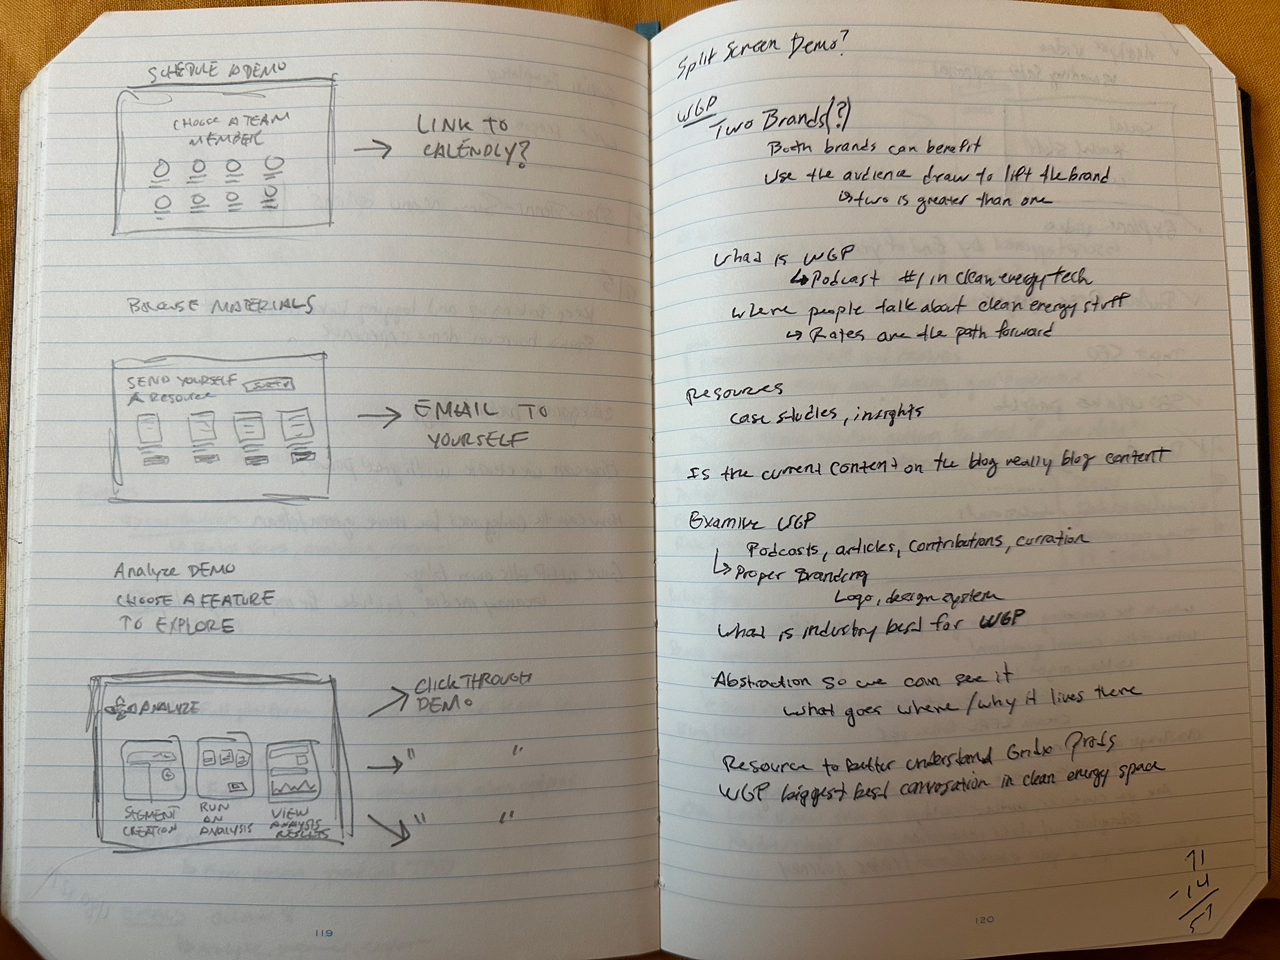 SCHEDULE A DEMO
CHOOSE A TEAM
MEMBER
LINK TO
CALENDLY?
BROWSE MATERIALS
SEND YOURSELF
A RESOURCE
EMAIL TO
YOURSELF
Analyze DEMO
CHOOSE A FEATURE
TO EXPLORE
ANALYZE
SEGMENT
CREATION
RUN
AN
ANALYSIS
VIEW
ANALYSIS
RESULTS
CLICK THROUGH
DEMO
" "
" "
119
Split Screen Demo?
WGP
Two Brands(?)
Both brands can benefit
Use the audience draw to lift the brand
↳ two is greater than one
What is WGP
↳ Podcast #1 in clean energy tech
Where people talk about clean energy stuff
↳ Rates are the path forward
Resources
case studies, insights
Is the current content on the blog really blog content
Examine WGP
Podcasts, articles, contributions, curration
↳ Proper Branding
Logo, design system
What is industry best for WGP
Abstraction so we can see it
What goes where / why it lives there
Resource to better understand Gridx Prods
WGP biggest best convosation in clean energy space
71
-14
57
120